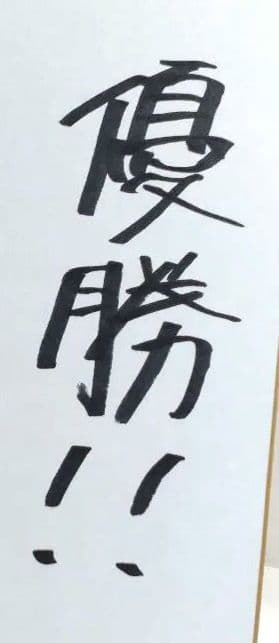 優勝!!